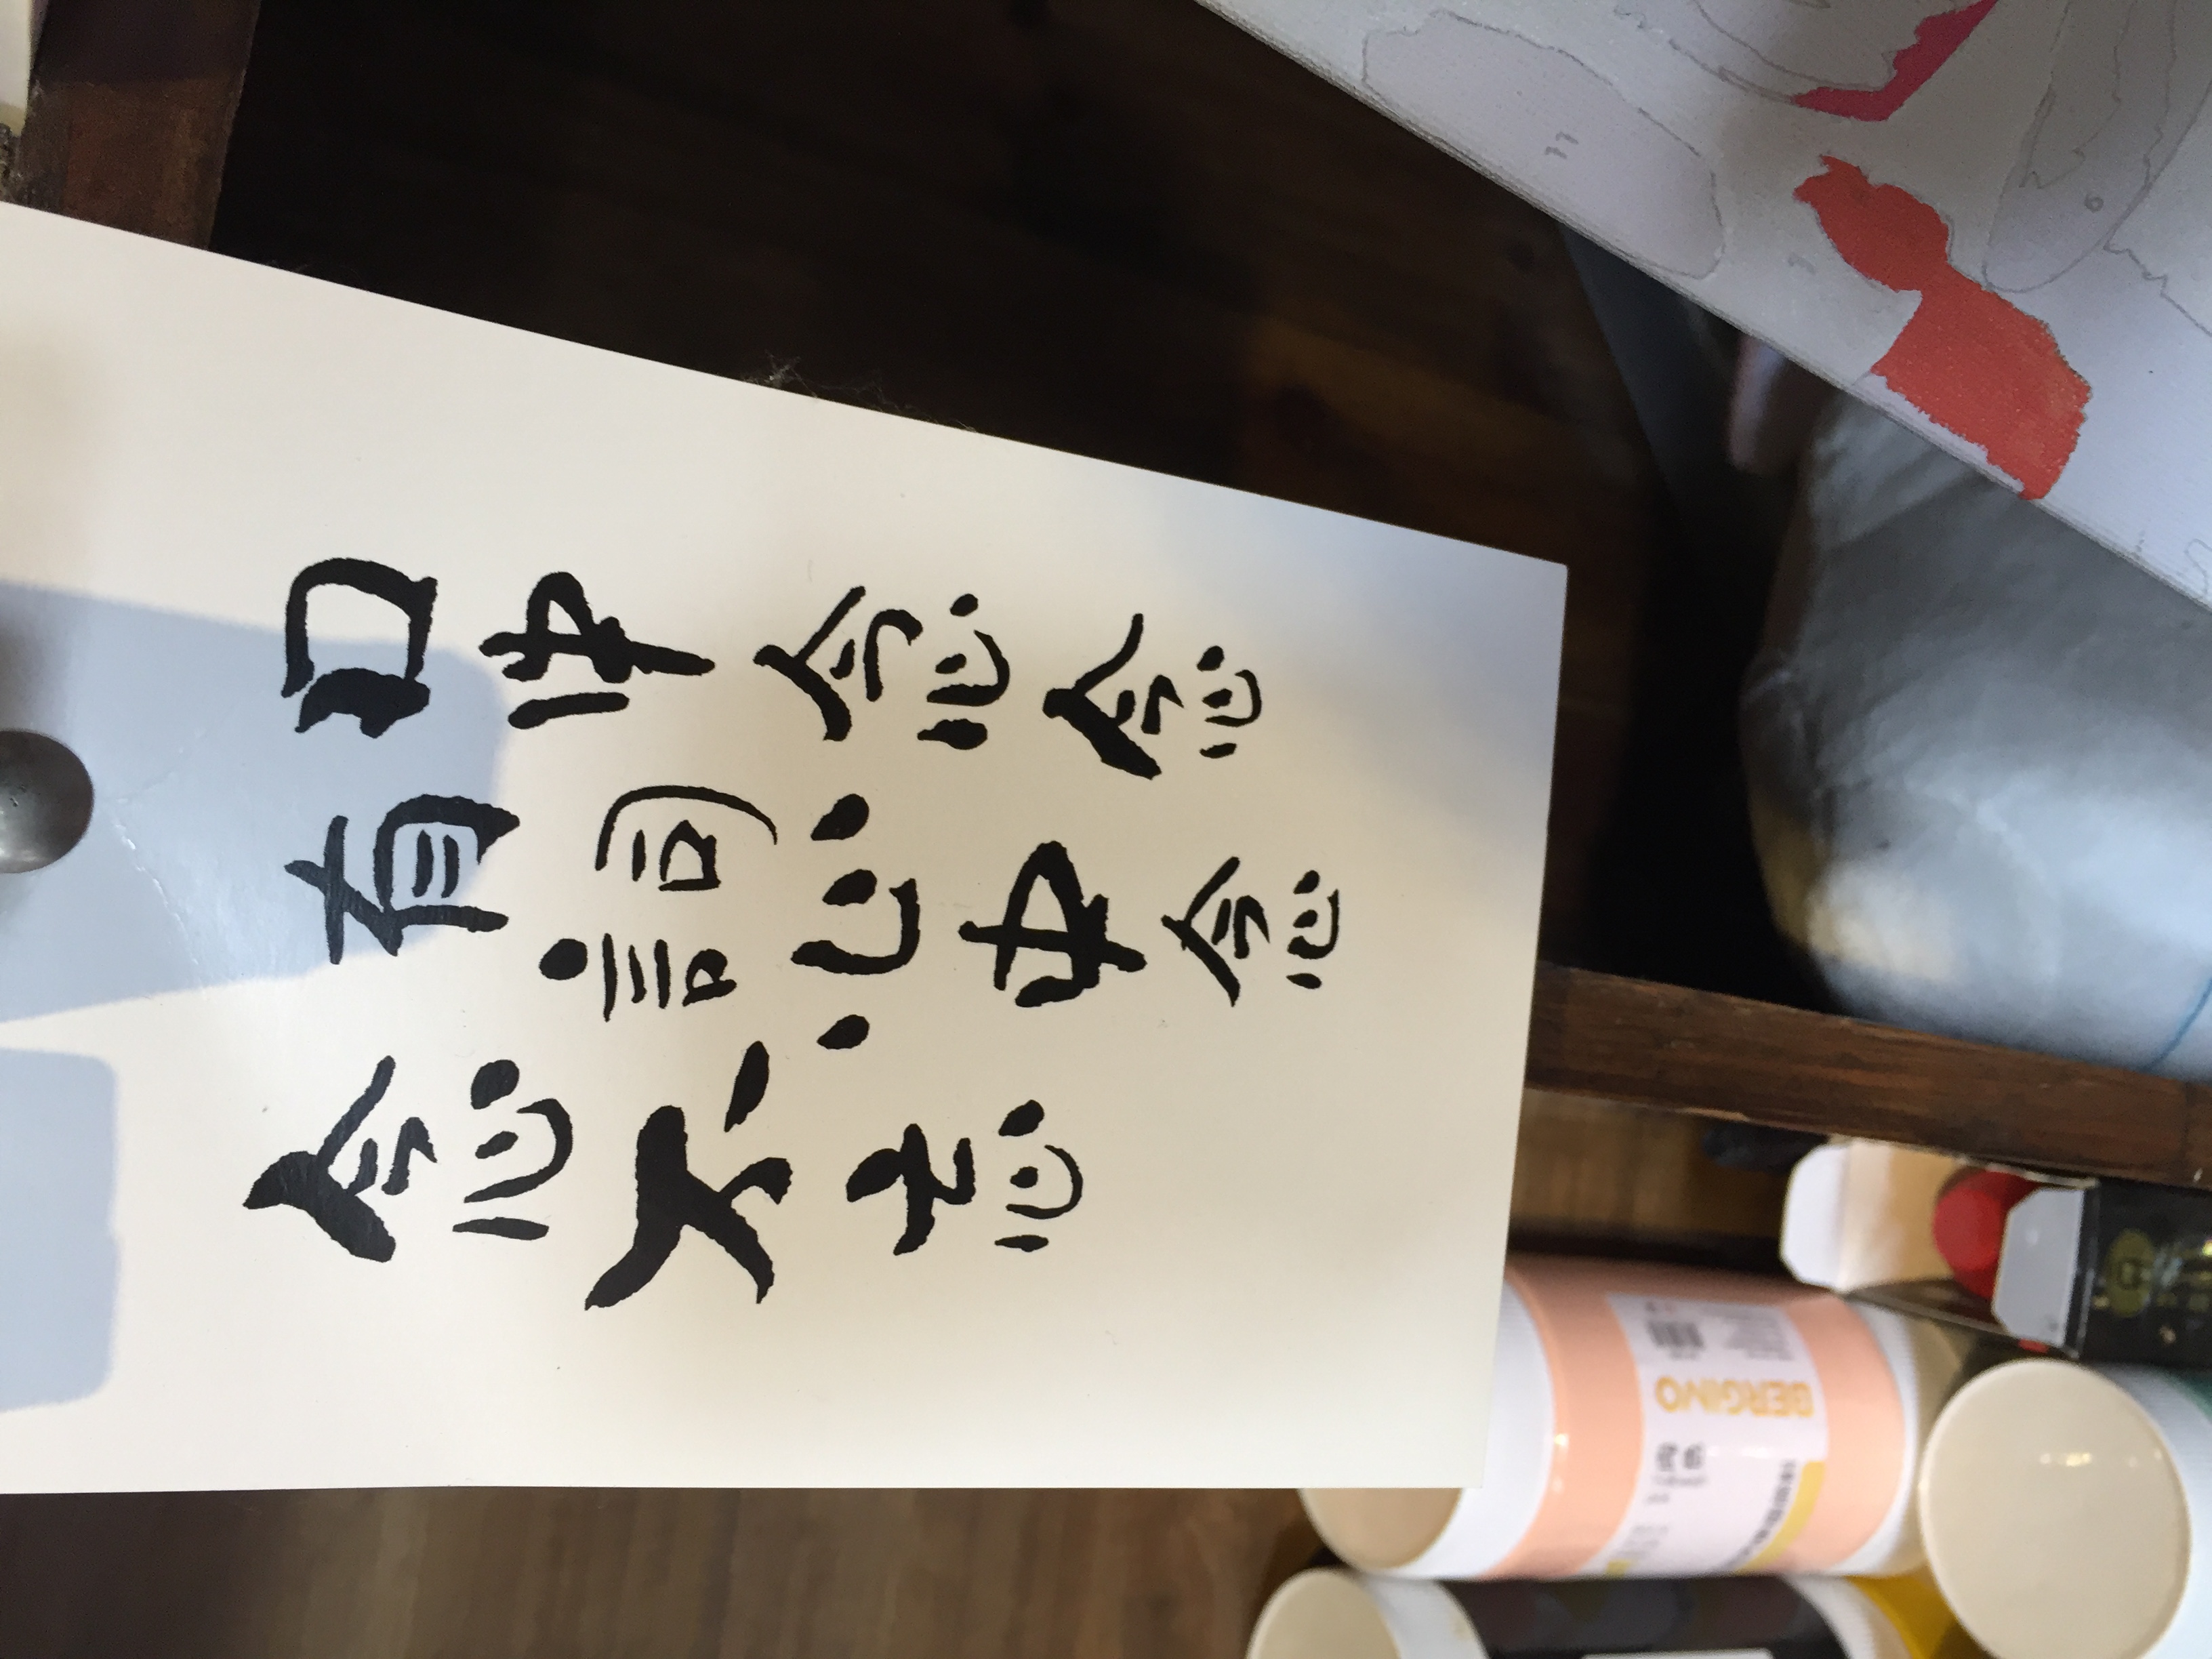 口中念念
有詞心中念
念不忘
BERGINO
11
6